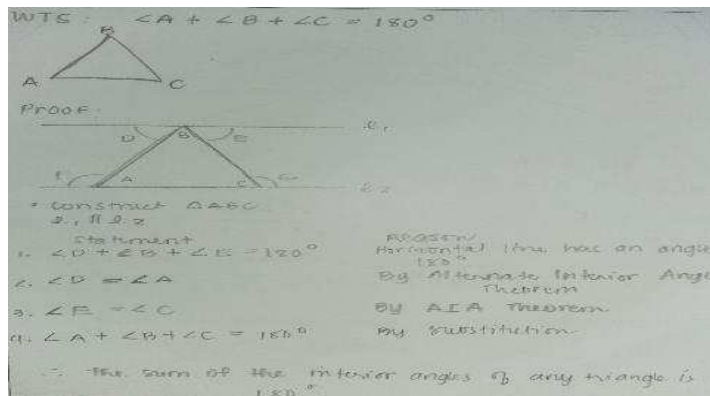 WTS: ∠A + ∠B + ∠C = 180°
B
A
C
Proof:
l₁
D
B
E
F
A
C
G
l₂
• construct △ABC
l₁ ∥ l₂
Statement
Reason
1. ∠D + ∠B + ∠E = 180°
Horizontal line has an angle
180°
2. ∠D = ∠A
By Alternate Interior Angle
Theorem
3. ∠E = ∠C
By AIA Theorem
4. ∠A + ∠B + ∠C = 180°
By substitution
∴ The sum of the interior angles of any triangle is
180°